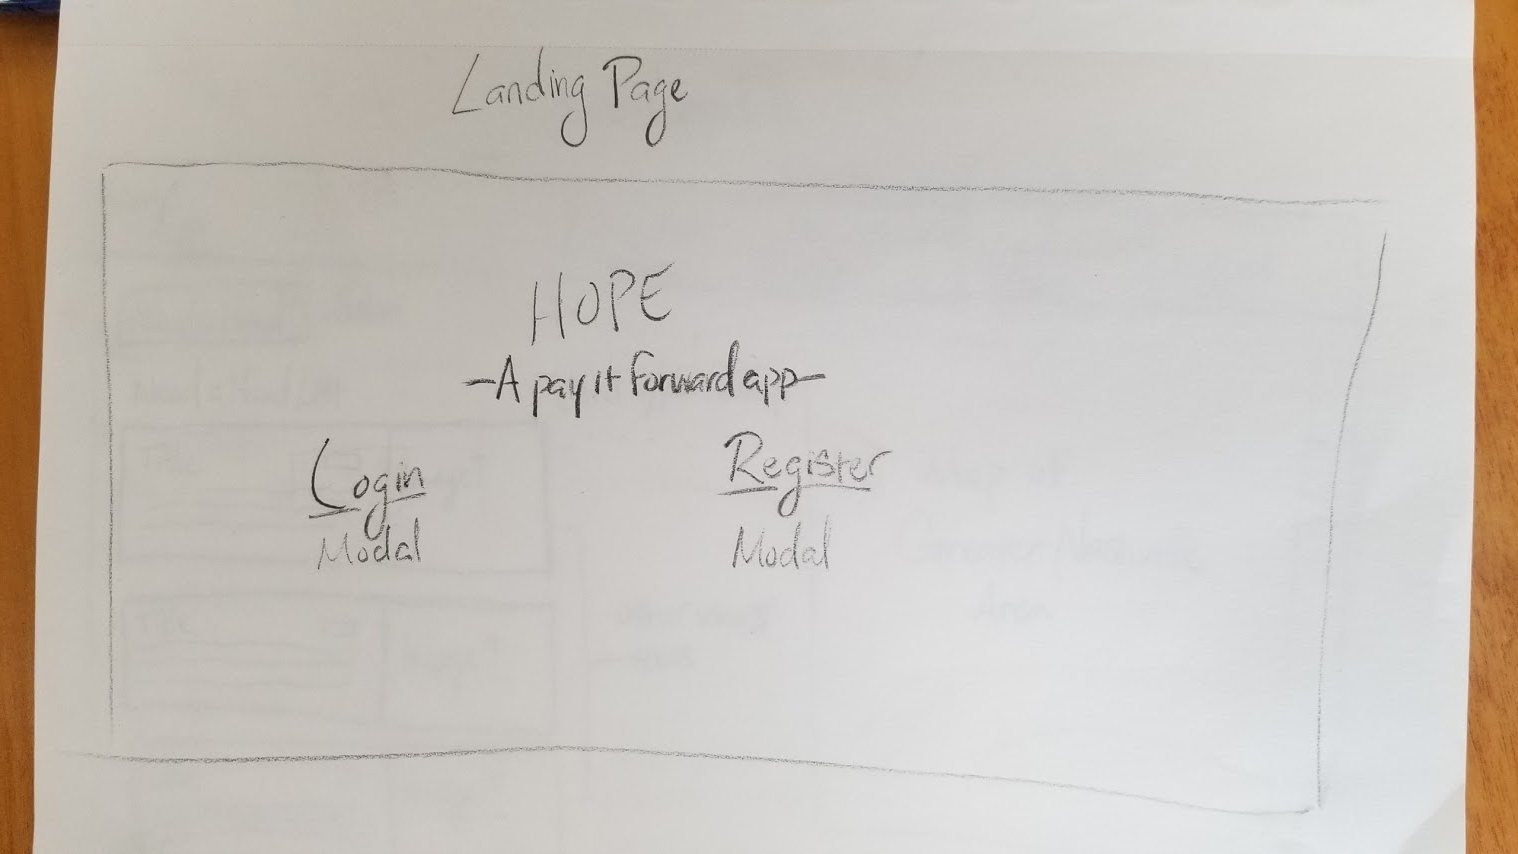 Landing Page
HOPE
-A pay it forward app-
Login
Modal
Register
Modal